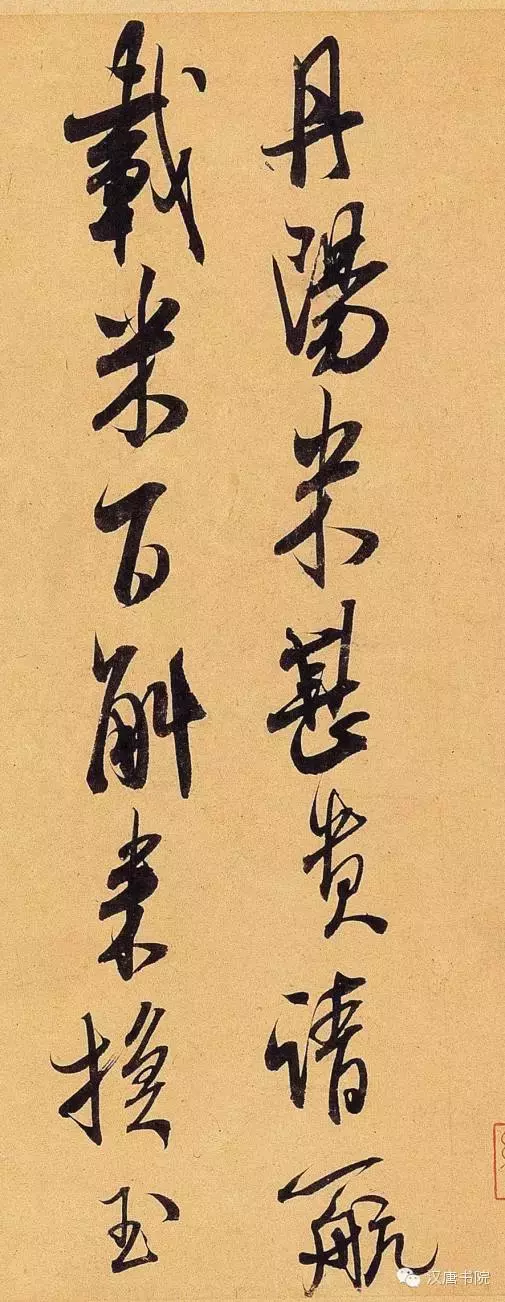 丹陽米甚貴請一航
載米百斛來換玉
汉唐书院